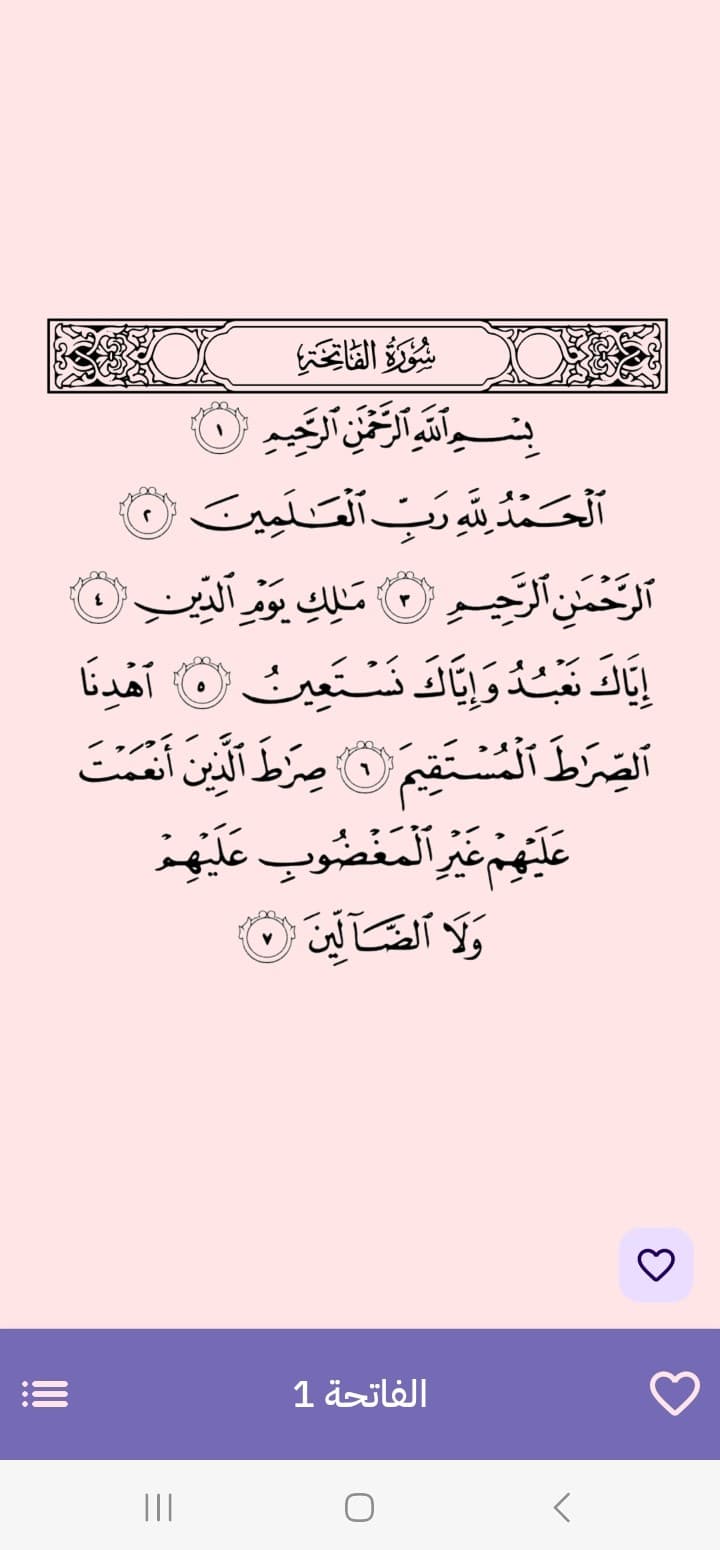 سُورَةُ الفَاتِحَةِ
بِسْمِ ٱللَّهِ ٱلرَّحْمَٰنِ ٱلرَّحِيمِ ١
ٱلْحَمْدُ لِلَّهِ رَبِّ ٱلْعَٰلَمِينَ ٢
ٱلرَّحْمَٰنِ ٱلرَّحِيمِ ٣ مَٰلِكِ يَوْمِ ٱلدِّينِ ٤
إِيَّاكَ نَعْبُدُ وَإِيَّاكَ نَسْتَعِينُ ٥ ٱهْدِنَا
ٱلصِّرَٰطَ ٱلْمُسْتَقِيمَ ٦ صِرَٰطَ ٱلَّذِينَ أَنْعَمْتَ
عَلَيْهِمْ غَيْرِ ٱلْمَغْضُوبِ عَلَيْهِمْ
وَلَا ٱلضَّآلِّينَ ٧
الفاتحة 1